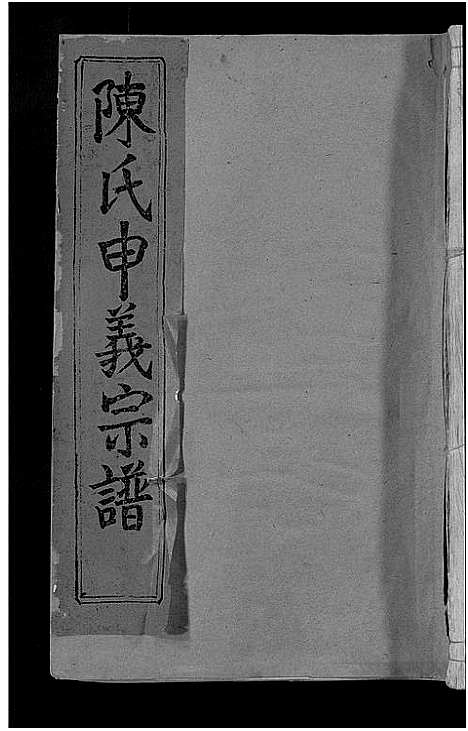 陳氏申義宗譜